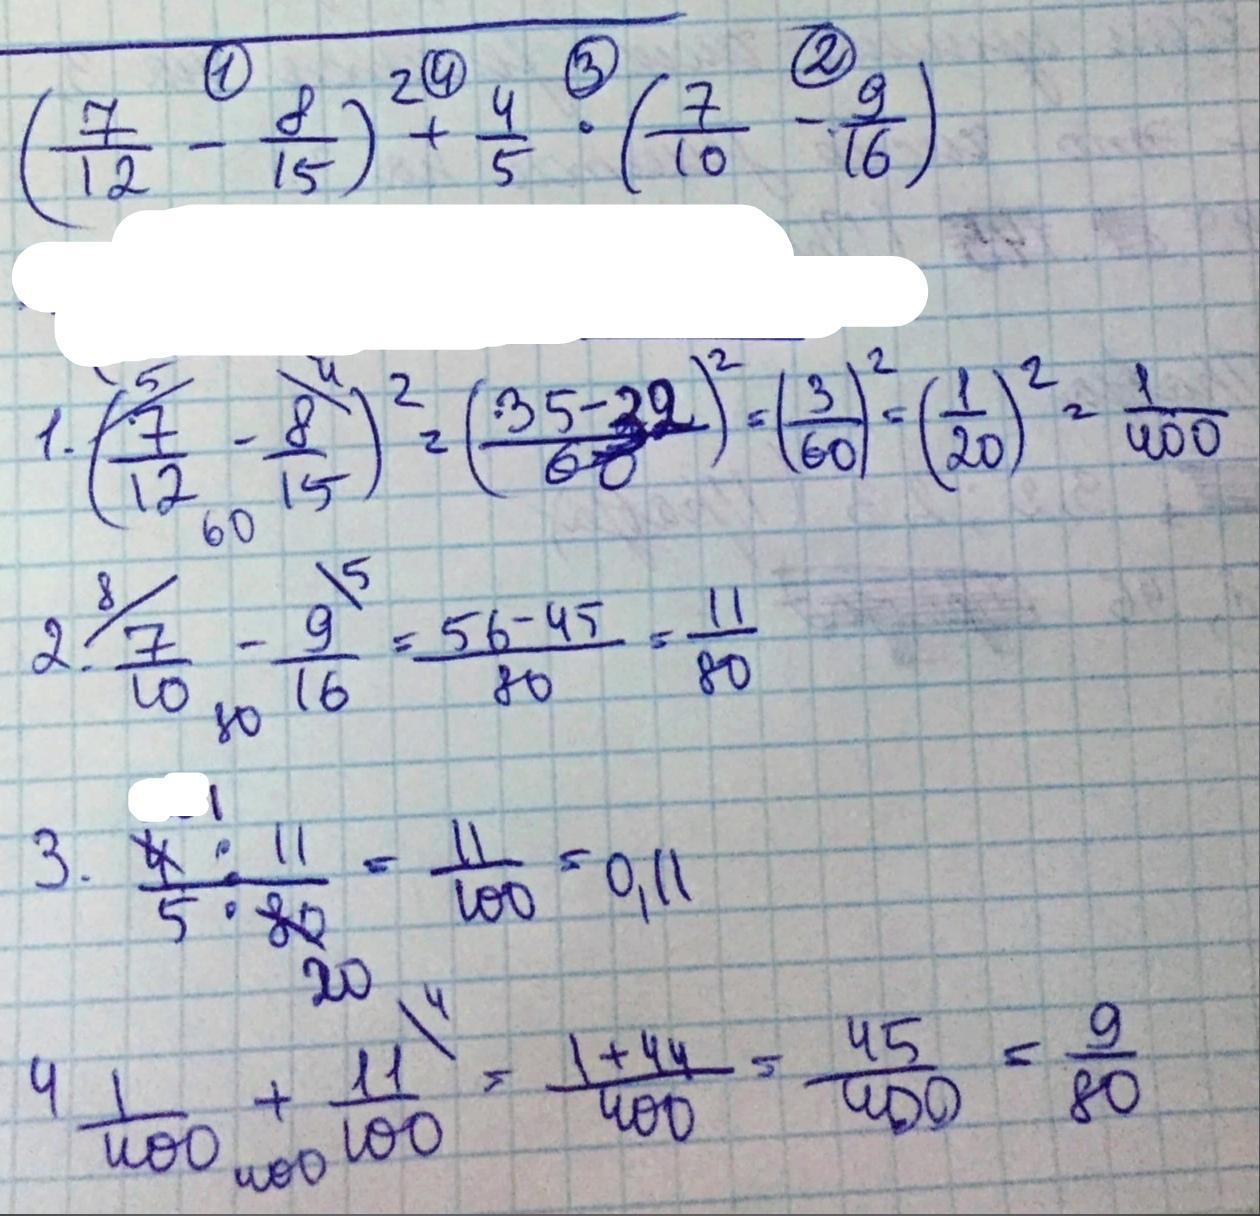 (7/12 - 8/15)² + 4/5 · (7/10 - 9/16)
① ④ ③ ②
1. (7/12 - 8/15)² = (35-32/60)² = (3/60)² = (1/20)² = 1/400
5 4 60
2. 7/10 - 9/16 = 56-45/80 = 11/80
8 5 80
3. 4 · 11/5 · 80 = 11/100 = 0,11
1 20
4 1/400 + 11/100 = 1+44/400 = 45/400 = 9/80
4 400